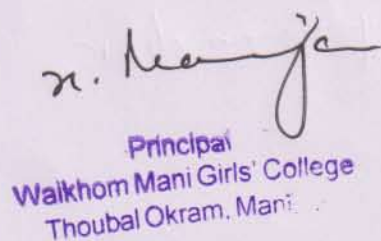 Principal
Waikhom Mani Girls' College
Thoubal Okram, Mani